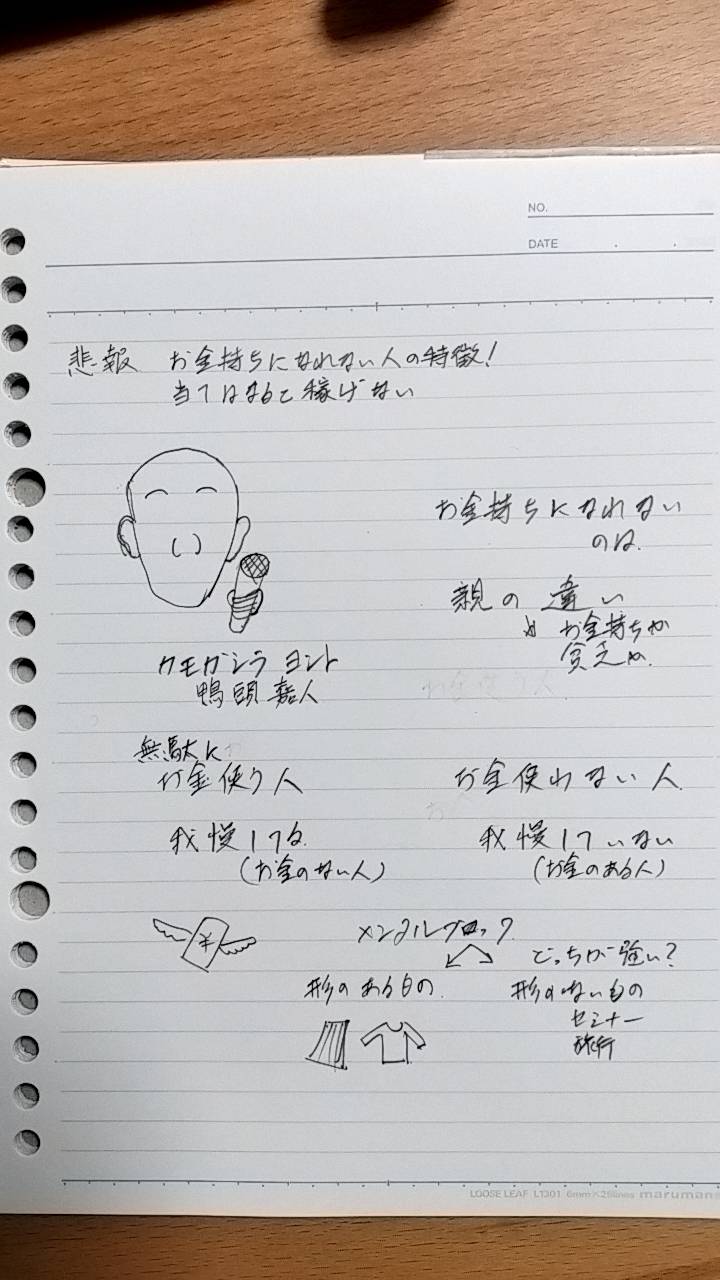 NO.
DATE
悲報 お金持ちになれない人の特徴!
当てはまると稼げない
お金持ちになれない
のは、
親の違い
お金持ちか
貧乏か、
カモガシラ ヨシト
鴨頭嘉人
無駄に
お金使う人
お金使わない人
我慢してる
(お金のない人)
我慢していない
(お金のある人)
¥
メンタルブロック
どっちが強い?
形のあるもの
形のないもの
セミナー
旅行
LOOSE LEAF L1301 6mm×29lines maruman